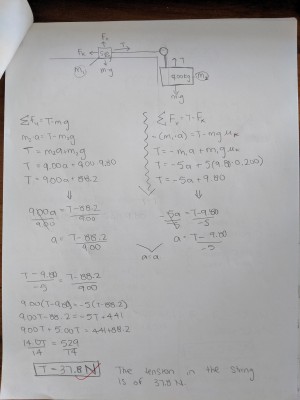 Fn
Fk
T
5kg
m₁
mg
T
9.00kg
m₂
mg
ΣFᵤ=T-mg
m₂a=T-mg
T=m₂a+m₂g
T=9.00a+9.00·9.80
T=9.00a+88.2
⇓
9.00a/9.00=T-88.2/9.00
a=T-88.2/9.00
ΣFₓ=T-Fₖ
-(m₁a)=T-mgμₖ
T=-m₁a+m₁gμₖ
T=-5a+5(9.80·0.200)
T=-5a+9.80
⇓
-5a/-5=T-9.80/-5
a=T-9.80/-5
a=a
T-9.80/-5=T-88.2/9.00
9.00(T-9.80)=-5(T-88.2)
9.00T-88.2=-5T+441
9.00T+5.00T=441+88.2
14.0T/14=529/14
T=37.8N
The tension in the string
is of 37.8 N.